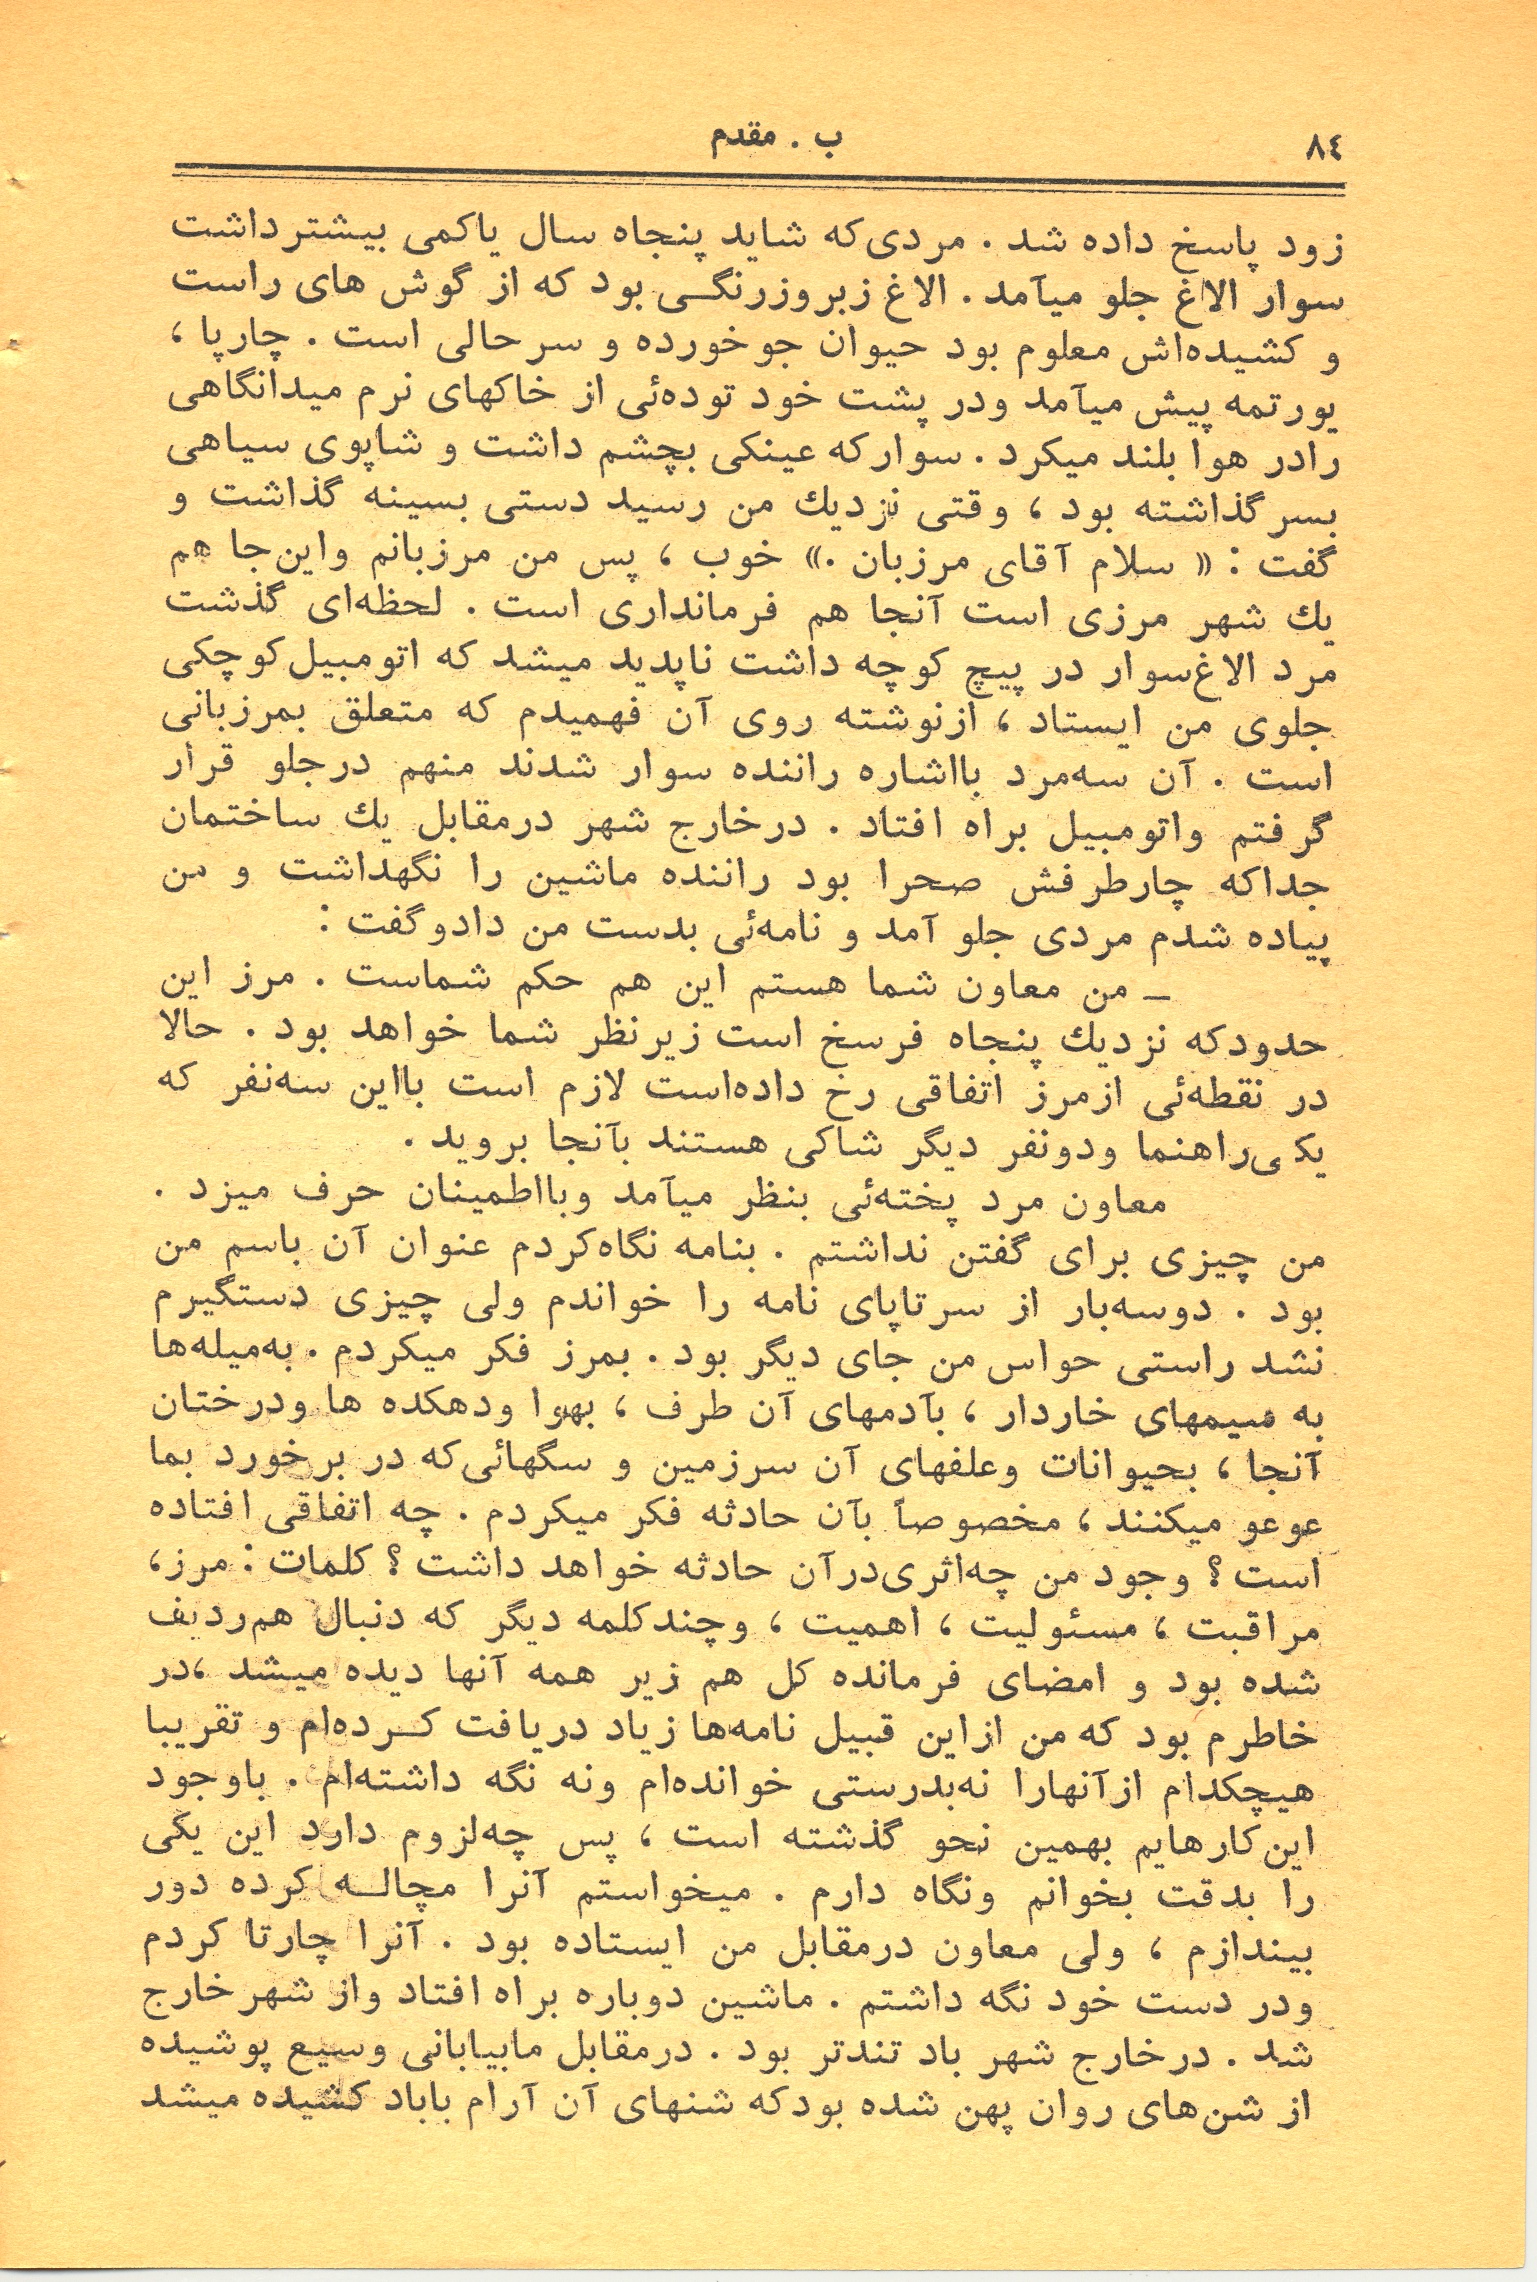 ۸٤
ب . مقدم
زود پاسخ داده شد . مردی‌که شاید پنجاه سال یاکمی بیشترداشت
سوار الاغ جلو میآمد . الاغ زبروزرنگی بود که از گوش های راست
و کشیده‌اش معلوم بود حیوان جوخورده و سرحالی است . چارپا ،
یورتمه پیش میآمد ودر پشت خود توده‌ئی از خاکهای نرم میدانگاهی
رادر هوا بلند میکرد . سوارکه عینکی بچشم داشت و شاپوی سیاهی
بسرگذاشته بود ، وقتی نزدیك من رسید دستی بسینه گذاشت و
گفت : « سلام آقای مرزبان .» خوب ، پس من مرزبانم واین‌جا هم
یك شهر مرزی است آنجا هم فرمانداری است . لحظه‌ای گذشت
مرد الاغ‌سوار در پیچ کوچه داشت ناپدید میشد که اتومبیل‌کوچکی
جلوی من ایستاد ، ازنوشته روی آن فهمیدم که متعلق بمرزبانی
است . آن سه‌مرد بااشاره راننده سوار شدند منهم درجلو قرار
گرفتم واتومبیل براه افتاد . درخارج شهر درمقابل یك ساختمان
جداکه چارطرفش صحرا بود راننده ماشین را نگهداشت و من
پیاده شدم مردی جلو آمد و نامه‌ئی بدست من دادوگفت :
ــ من معاون شما هستم این هم حکم شماست . مرز این
حدودکه نزدیك پنجاه فرسخ است زیرنظر شما خواهد بود . حالا
در نقطه‌ئی ازمرز اتفاقی رخ داده‌است لازم است بااین سه‌نفر که
یکی‌راهنما ودونفر دیگر شاکی هستند بآنجا بروید .
معاون مرد پخته‌ئی بنظر میآمد وبااطمینان حرف میزد .
من چیزی برای گفتن نداشتم . بنامه نگاه‌کردم عنوان آن باسم من
بود . دوسه‌بار از سرتاپای نامه را خواندم ولی چیزی دستگیرم
نشد راستی حواس من جای دیگر بود . بمرز فکر میکردم . به‌میله‌ها
به سیمهای خاردار ، بآدمهای آن طرف ، بهوا ودهکده ها ودرختان
آنجا ، بحیوانات وعلفهای آن سرزمین و سگهائی‌که در برخورد بما
عوعو میکنند ، مخصوصاً بآن حادثه فکر میکردم . چه اتفاقی افتاده
است ؟ وجود من چه‌اثری‌درآن حادثه خواهد داشت ؟ کلمات : مرز،
مراقبت ، مسئولیت ، اهمیت ، وچندکلمه دیگر که دنبال هم‌ردیف
شده بود و امضای فرمانده کل هم زیر همه آنها دیده میشد ،در
خاطرم بود که من ازاین قبیل نامه‌ها زیاد دریافت کرده‌ام و تقریبا
هیچکدام ازآنهارا نه‌بدرستی خوانده‌ام ونه نگه داشته‌ام . باوجود
این‌کارهایم بهمین نحو گذشته است ، پس چه‌لزوم دارد این یکی
را بدقت بخوانم ونگاه دارم . میخواستم آنرا مچاله کرده دور
بیندازم ، ولی معاون درمقابل من ایستاده بود . آنرا چارتا کردم
ودر دست خود نگه داشتم . ماشین دوباره براه افتاد واز شهرخارج
شد . درخارج شهر باد تندتر بود . درمقابل مابیابانی وسیع پوشیده
از شن‌های روان پهن شده بودکه شنهای آن آرام باباد کشیده میشد